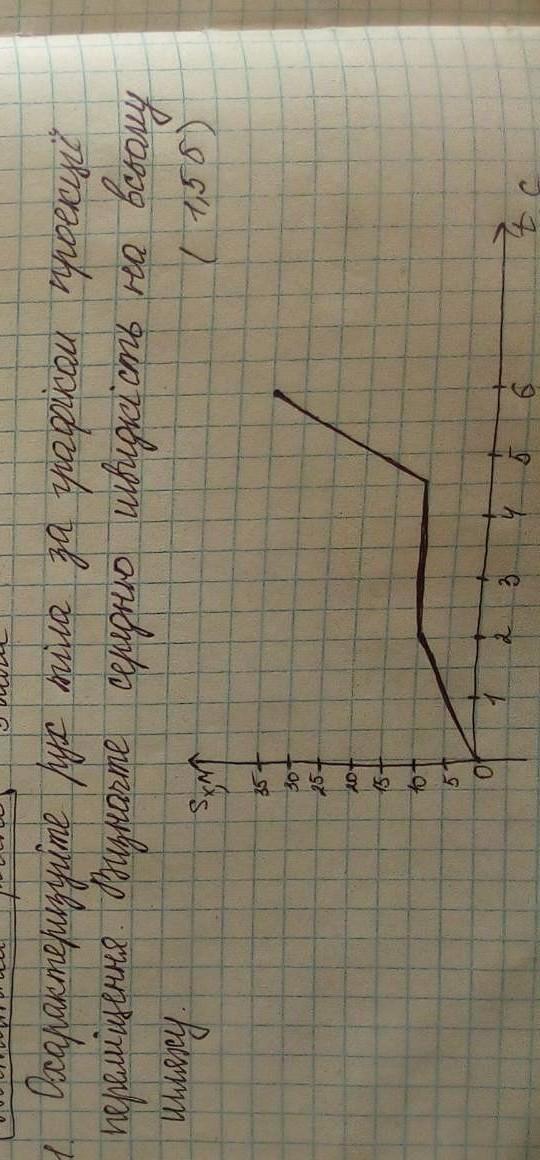 1. Охарактеризуйте рух тіла за графіком проекції
переміщення. Визначте середню швидкість на всьому
шляху. (1,5 б)
Sx, м
35
30
25
20
15
10
5
0 1 2 3 4 5 6 t, с